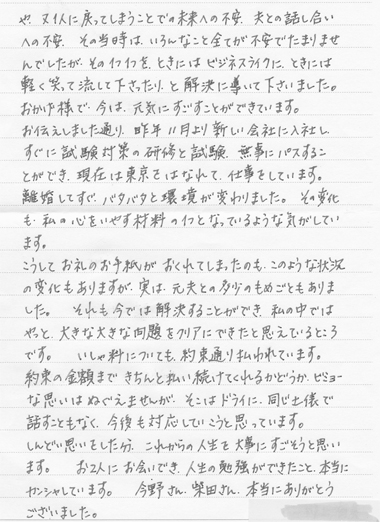 や、又1人に戻ってしまうことでの未来への不安、夫との話し合い
への不安、その当時は、いろんなこと全てが不安でたまりませ
んでしたが、その1つ1つを、ときにはビジネスライクに、ときには
軽く笑って流して下さったり、と解決に導いて下さいました。
おかげ様で、今は、元気にすごすことができています。
お伝えしました通り、昨年11月より新しい会社に入社し、
すぐに試験対策の研修と試験、無事にパスするこ
とができ、現在は東京をはなれて、仕事をしています。
離婚してすぐ、バタバタと環境が変わりました。その変化
も、私の心をいやす材料の1つとなっているような気がしてい
ます。
こうしてお礼のお手紙がおくれてしまったのも、このような状況
の変化もありますが、実は、元夫との多少のもめごともありま
した。それも今では解決することができ、私の中では
やっと、大きな大きな問題をクリアにできたと思えているところ
です。いしゃ料についても、約束通り払われています。
約束の金額まできちんと払い続けてくれるかどうか、ビミョー
な思いはぬぐえませんが、そこはドライに、同じ土俵で
話すこともなく、今後も対応していこうと思っています。
しんどい思いをした分、これからの人生を大事にすごそうと思い
ます。お2人にお会いでき、人生の勉強ができたこと、本当に
カンシャしています。今野さん、柴田さん、本当にありがとう
ございました。